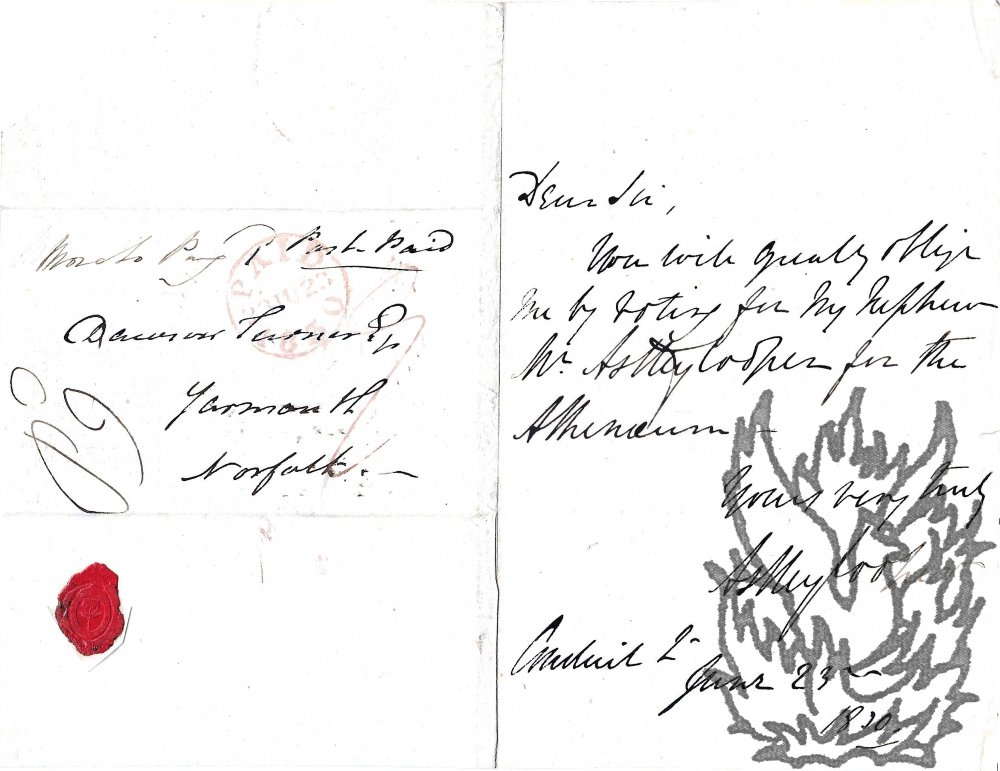 Post Paid
PAID
JU 23
1830
Dawson Turner Esq
Yarmouth
Norfolk. —
Dear Sir,
You will greatly oblige
me by voting for my Nephew
Mr. Astley Cooper for the
Athenaeum —
Yours very truly
Astley Coo
Conduit
June 23
1830